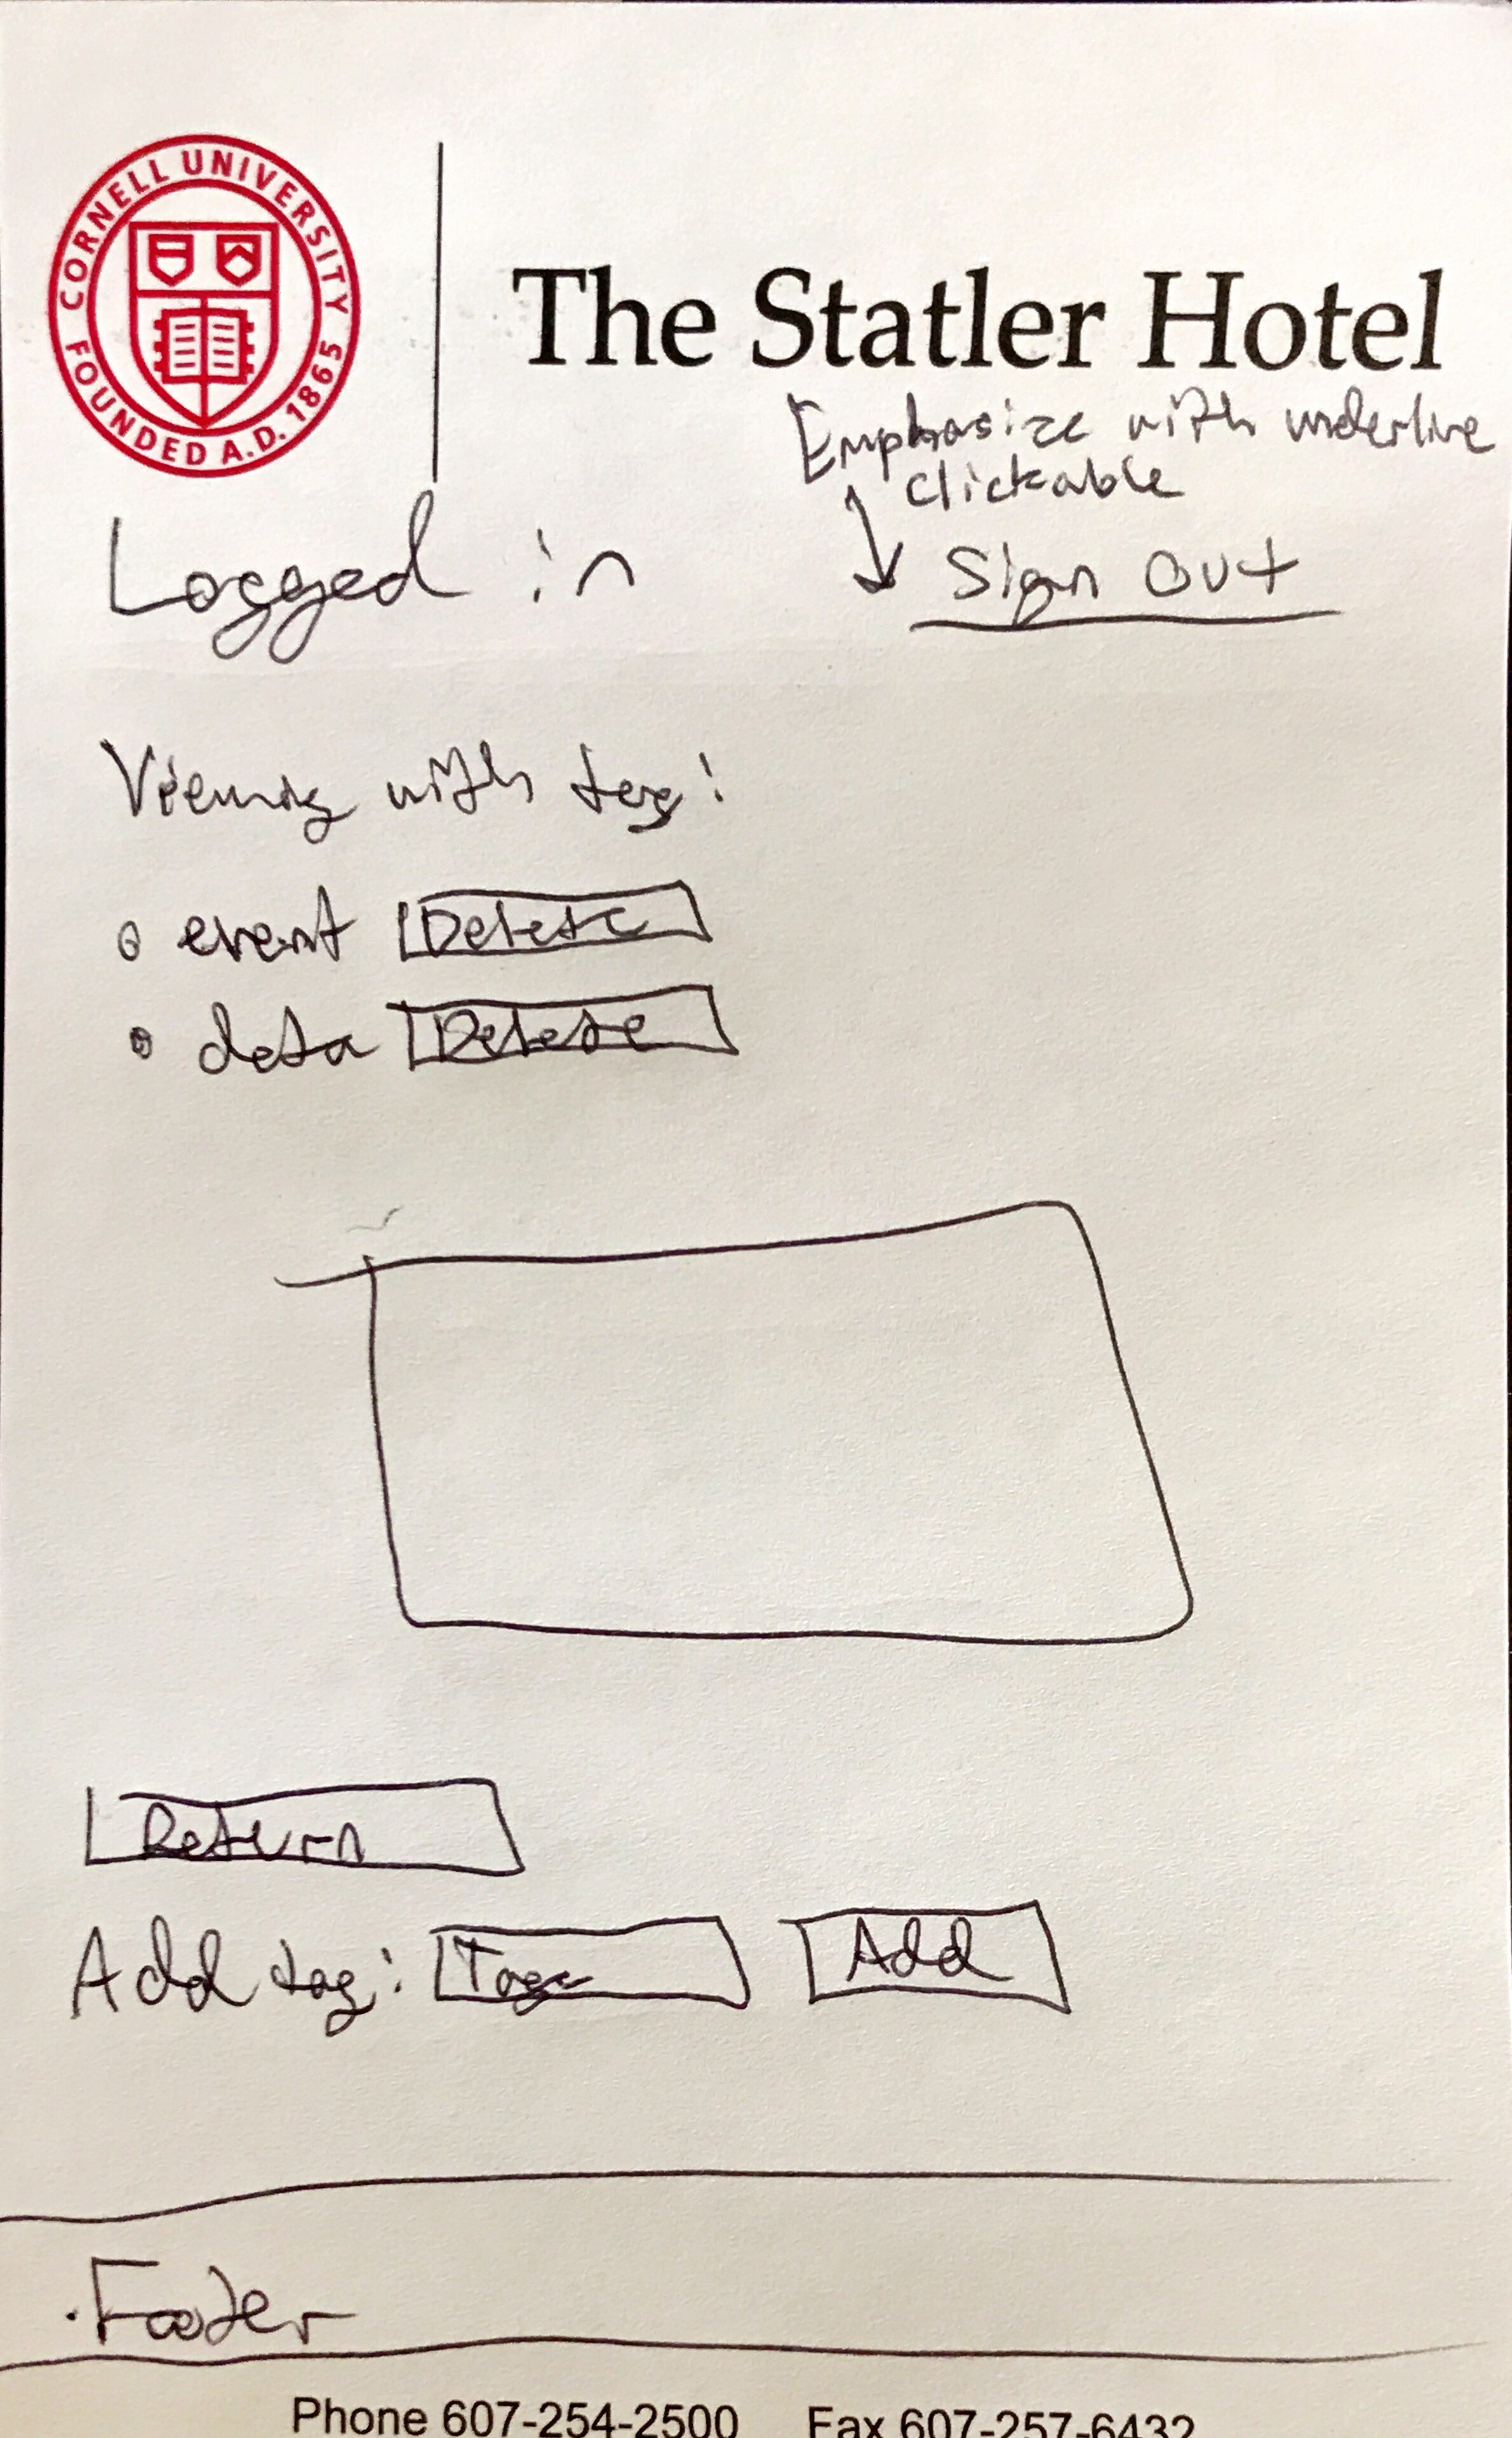 CORNELL UNIVERSITY
FOUNDED A.D. 1865
The Statler Hotel
Emphasize with underline
clickable
Logged in
Sign Out
Viewing with tag:
event Delete
data Delete
Return
Add tag: Tag Add
Footer
Phone 607-254-2500 Fax 607-257-6432